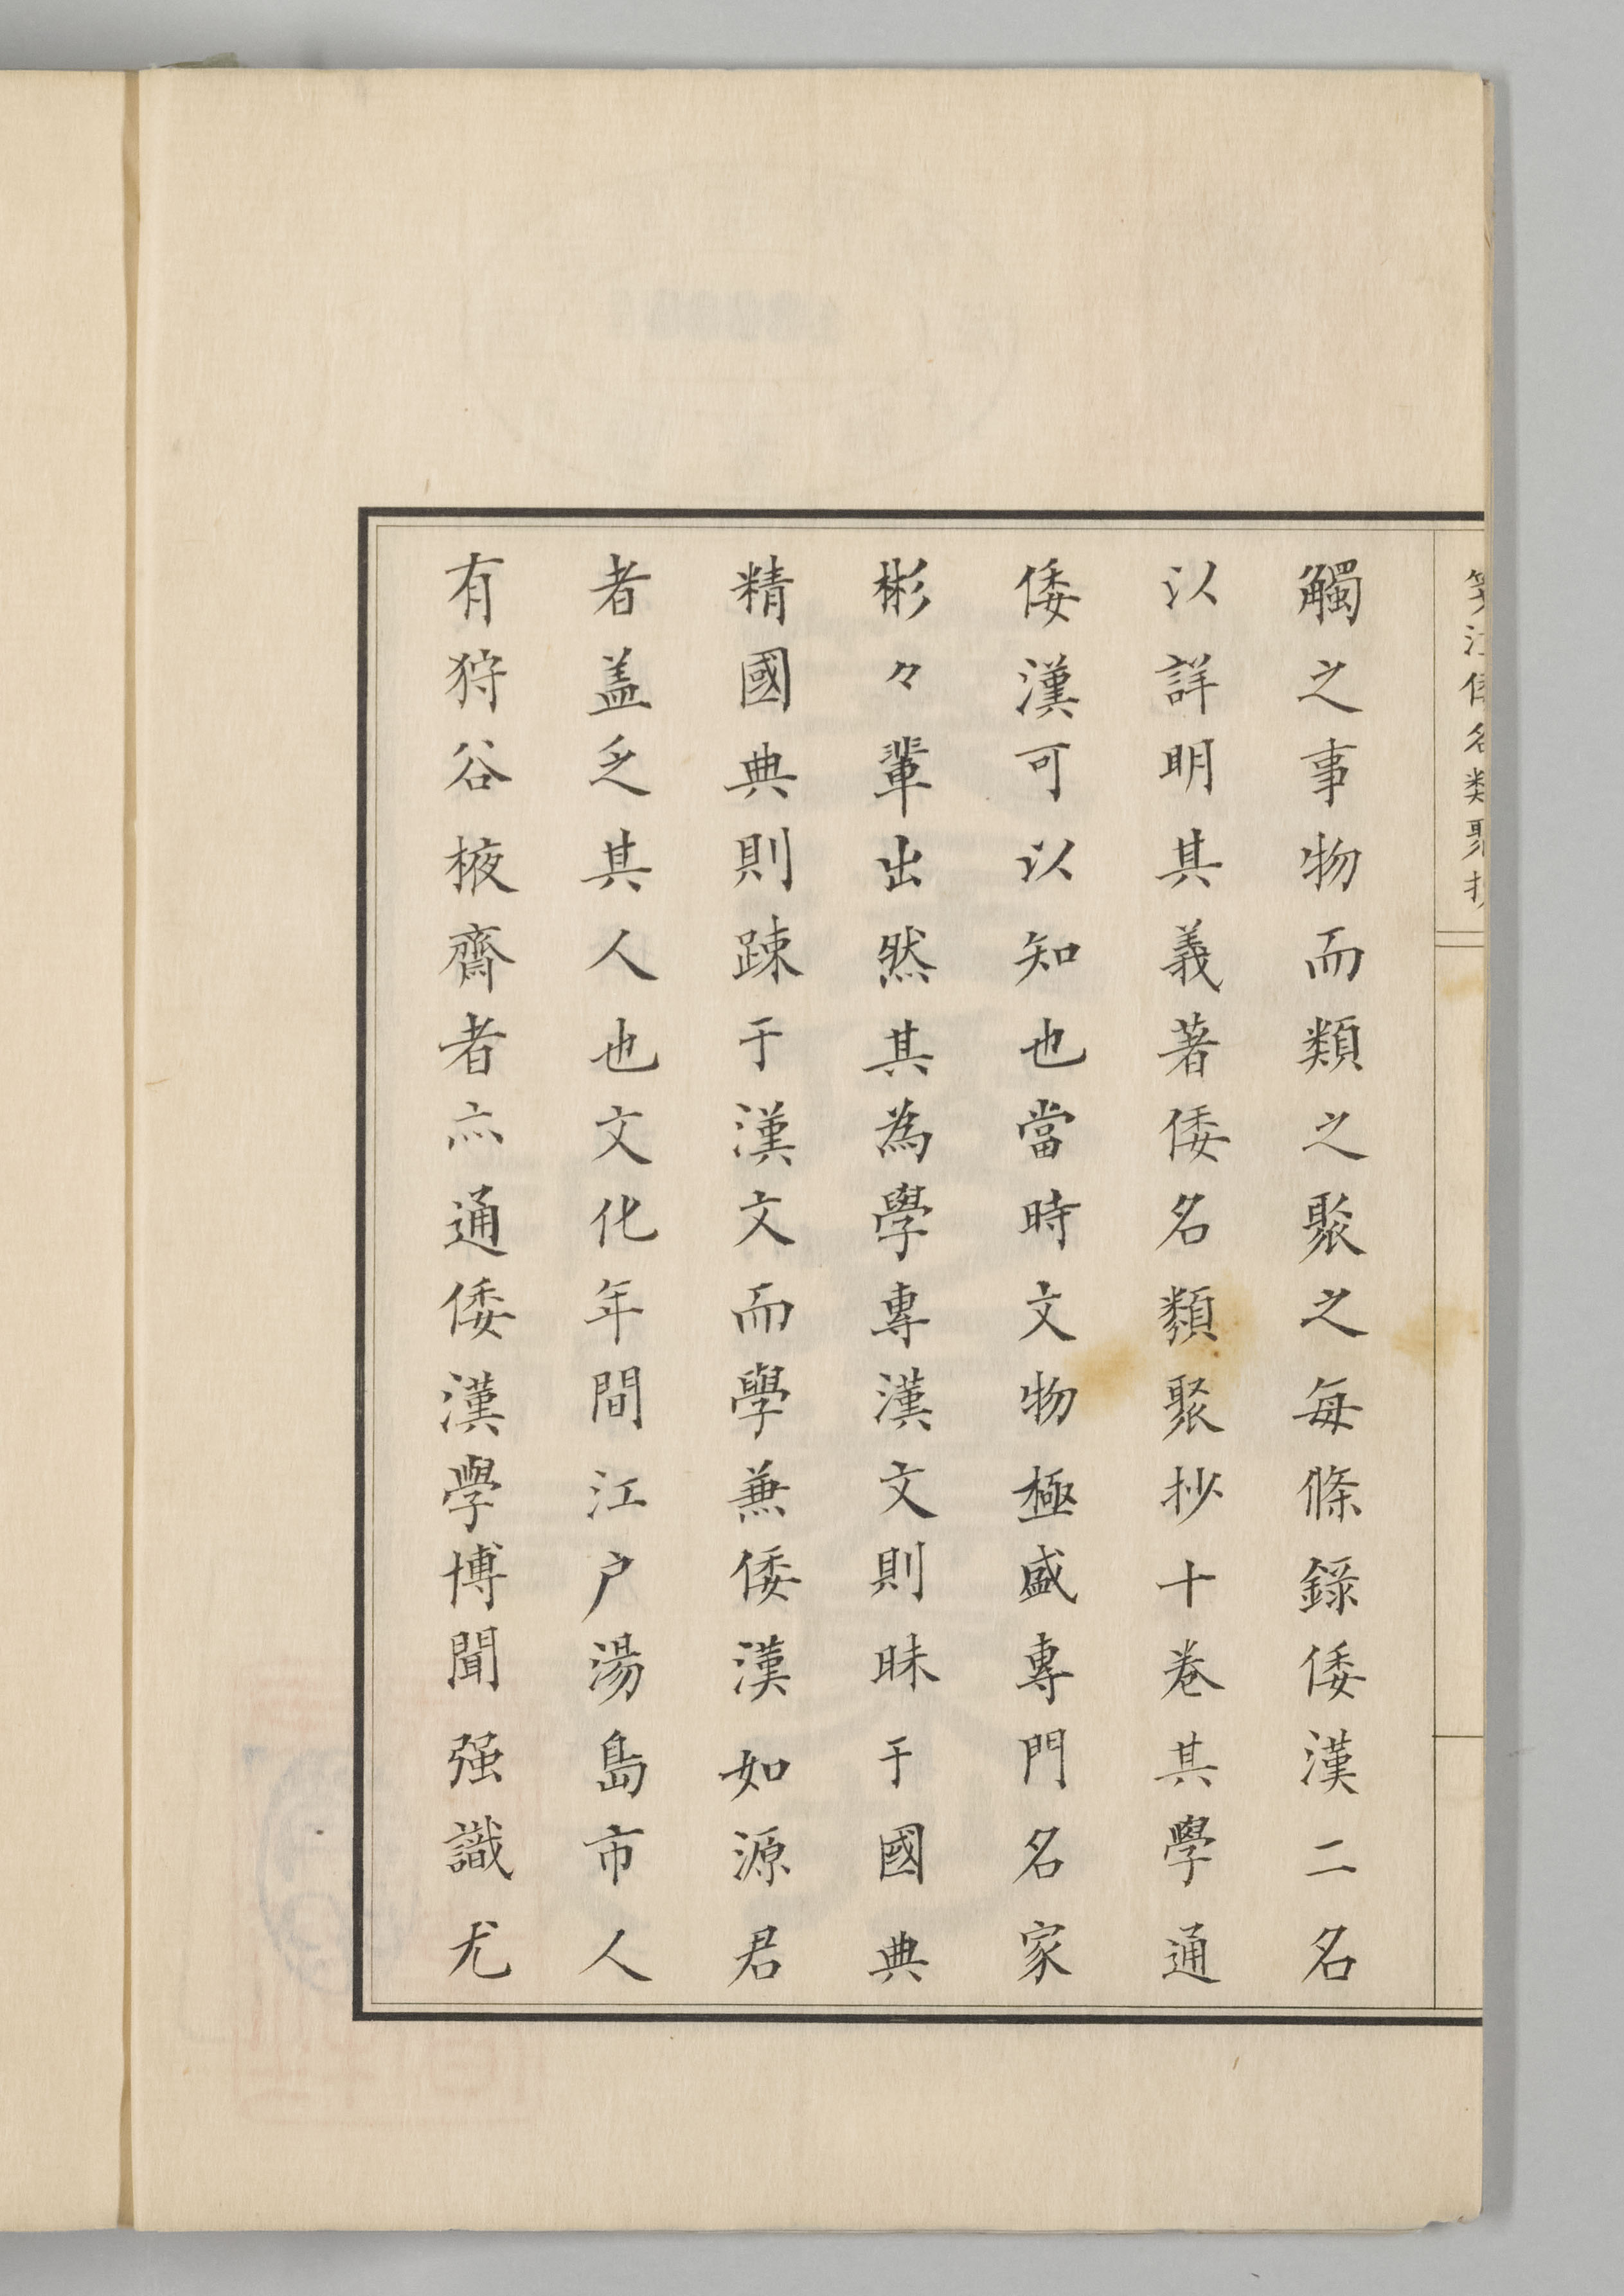 箋注倭名類聚抄
觸之事物而類之聚之每條錄倭漢二名
以詳明其義著倭名類聚抄十卷其學通
倭漢可以知也當時文物極盛專門名家
彬々輩出然其為學專漢文則昧于國典
精國典則踈于漢文而學兼倭漢如源君
者盖乏其人也文化年間江戶湯島市人
有狩谷掖齋者亦通倭漢學博聞强識尤